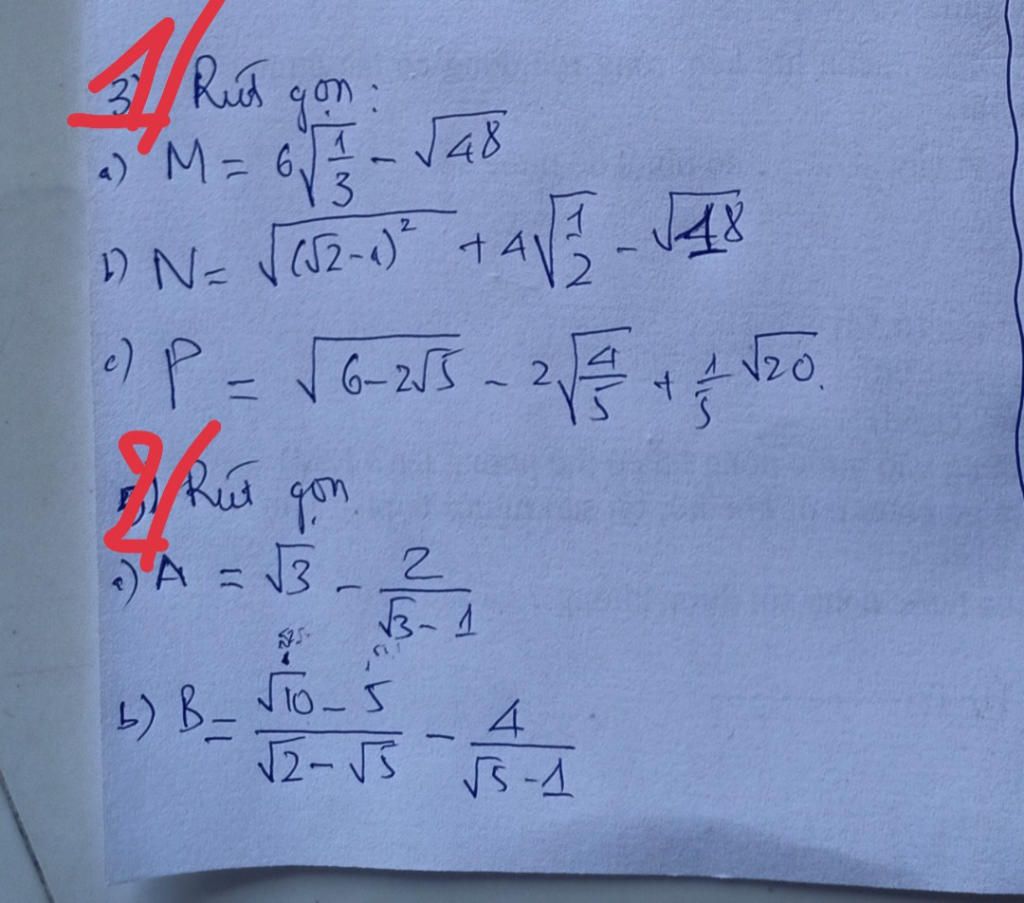 1/ 3) Rút gọn:
a) M = 6√(1/3) - √48
b) N = √((√2-1)²) + 4√(1/2) - √48
c) P = √(6-2√5) - 2√(4/5) + 1/5 √20.
2/ 5) Rút gọn
a) A = √3 - 2/(√3-1)
b) B = (√10-5)/(√2-√5) - 4/(√5-1)